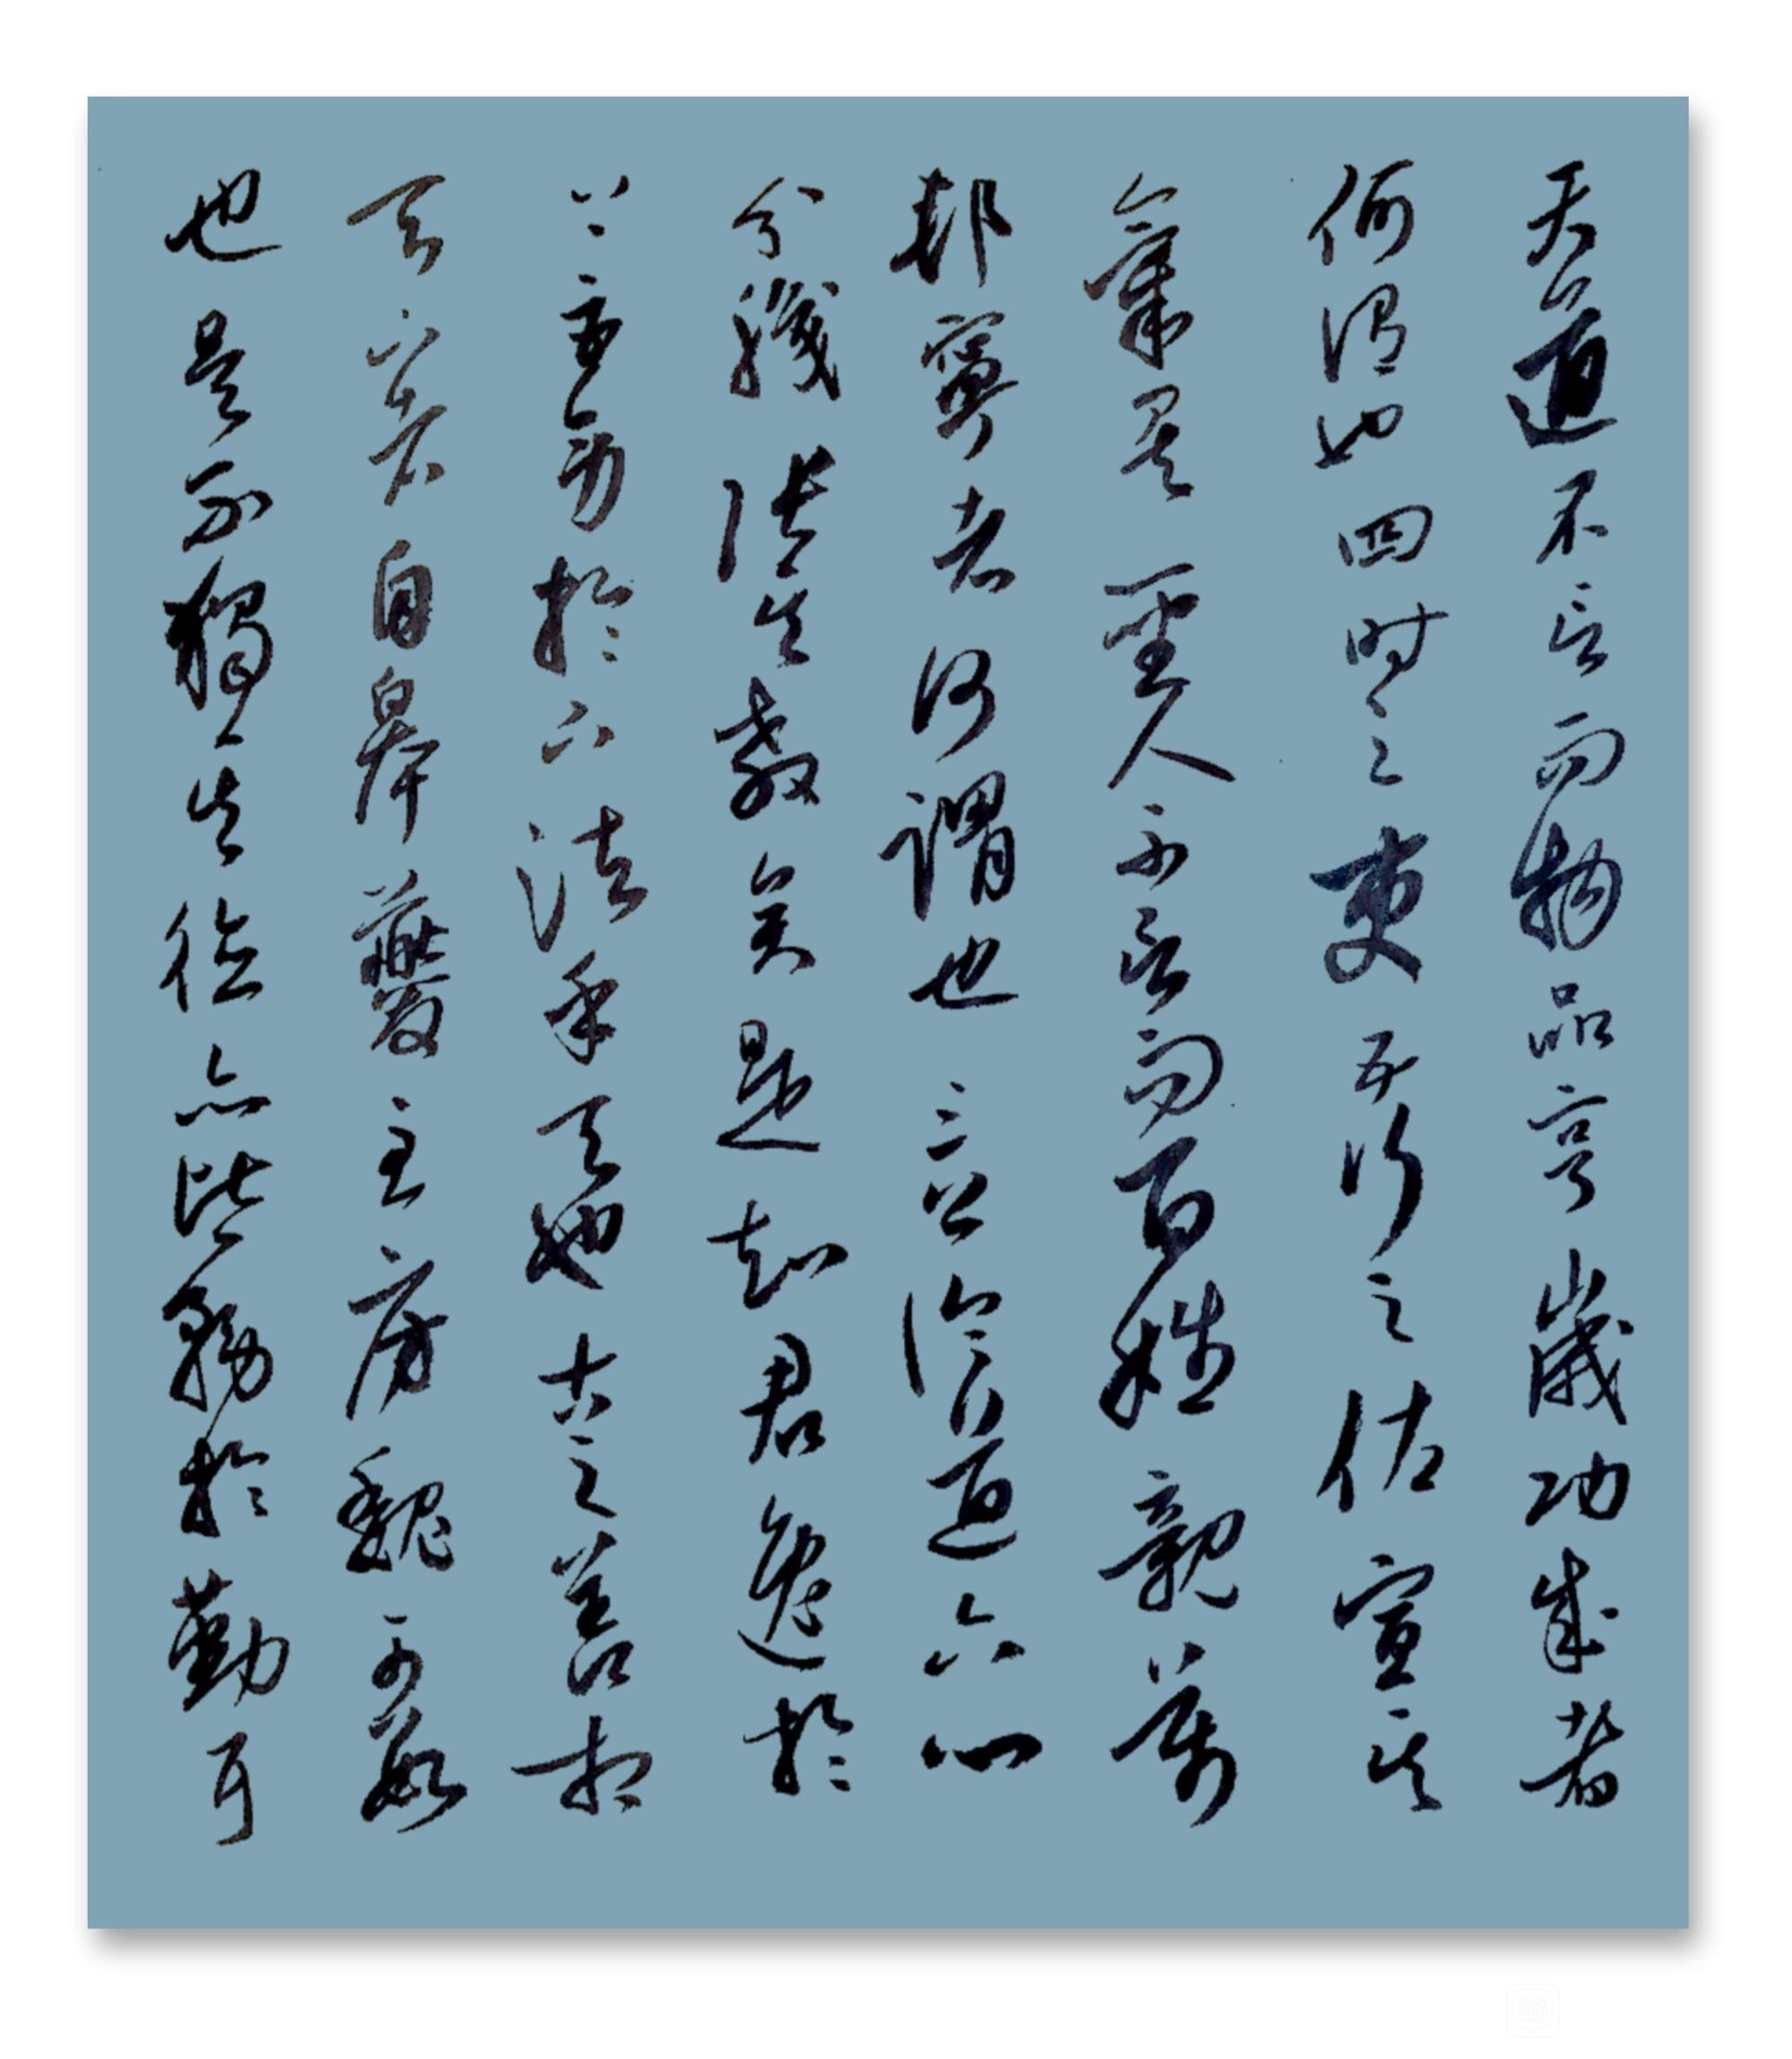 天道不言而物品亨歲功成者
何謂也四時之吏五行之佐宣其
氣矣聖人不言而百姓親萬
邦寧者何謂也三公論道六卿
分職張其教矣是知君逸於
上臣勞於下法乎天也古之善相
天下者自皋夔至房魏可數
也是不獨有其德亦皆務於勤耳